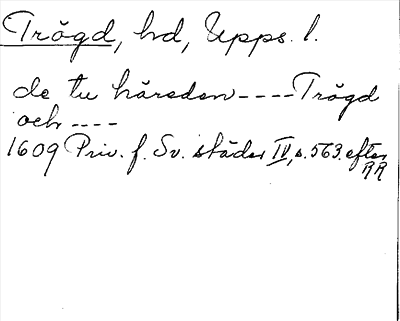 Trögd, hd, Upps. l.
de tu häreden----Trögd
och----
1609 Priv. f. Sv. städer IV, s. 563. efter
RR